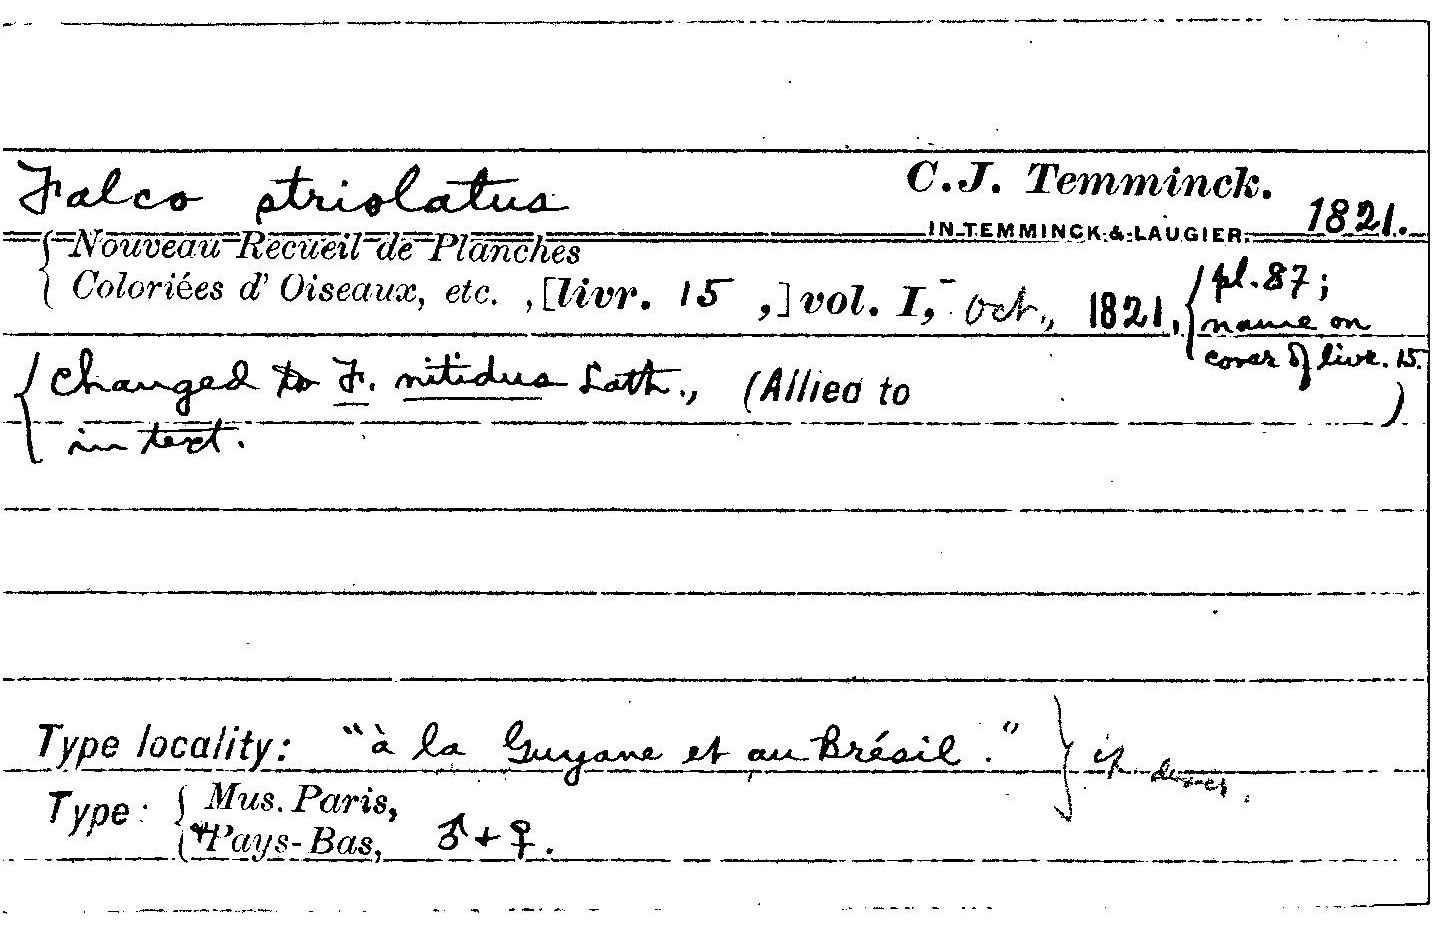 Falco striolatus C.J. Temminck.
IN TEMMINCK & LAUGIER. 1821.
Nouveau Recueil de Planches
Coloriées d' Oiseaux, etc. , [livr. 15 ,] vol. I, Oct., 1821, pl. 87;
name on
cover of livr. 15.
changed to F. nitidus Lath., (Allied to )
in text.
Type locality: "à la Guyane et au Brésil."
Type: Mus. Paris,
Pays-Bas, ♂ + ♀.